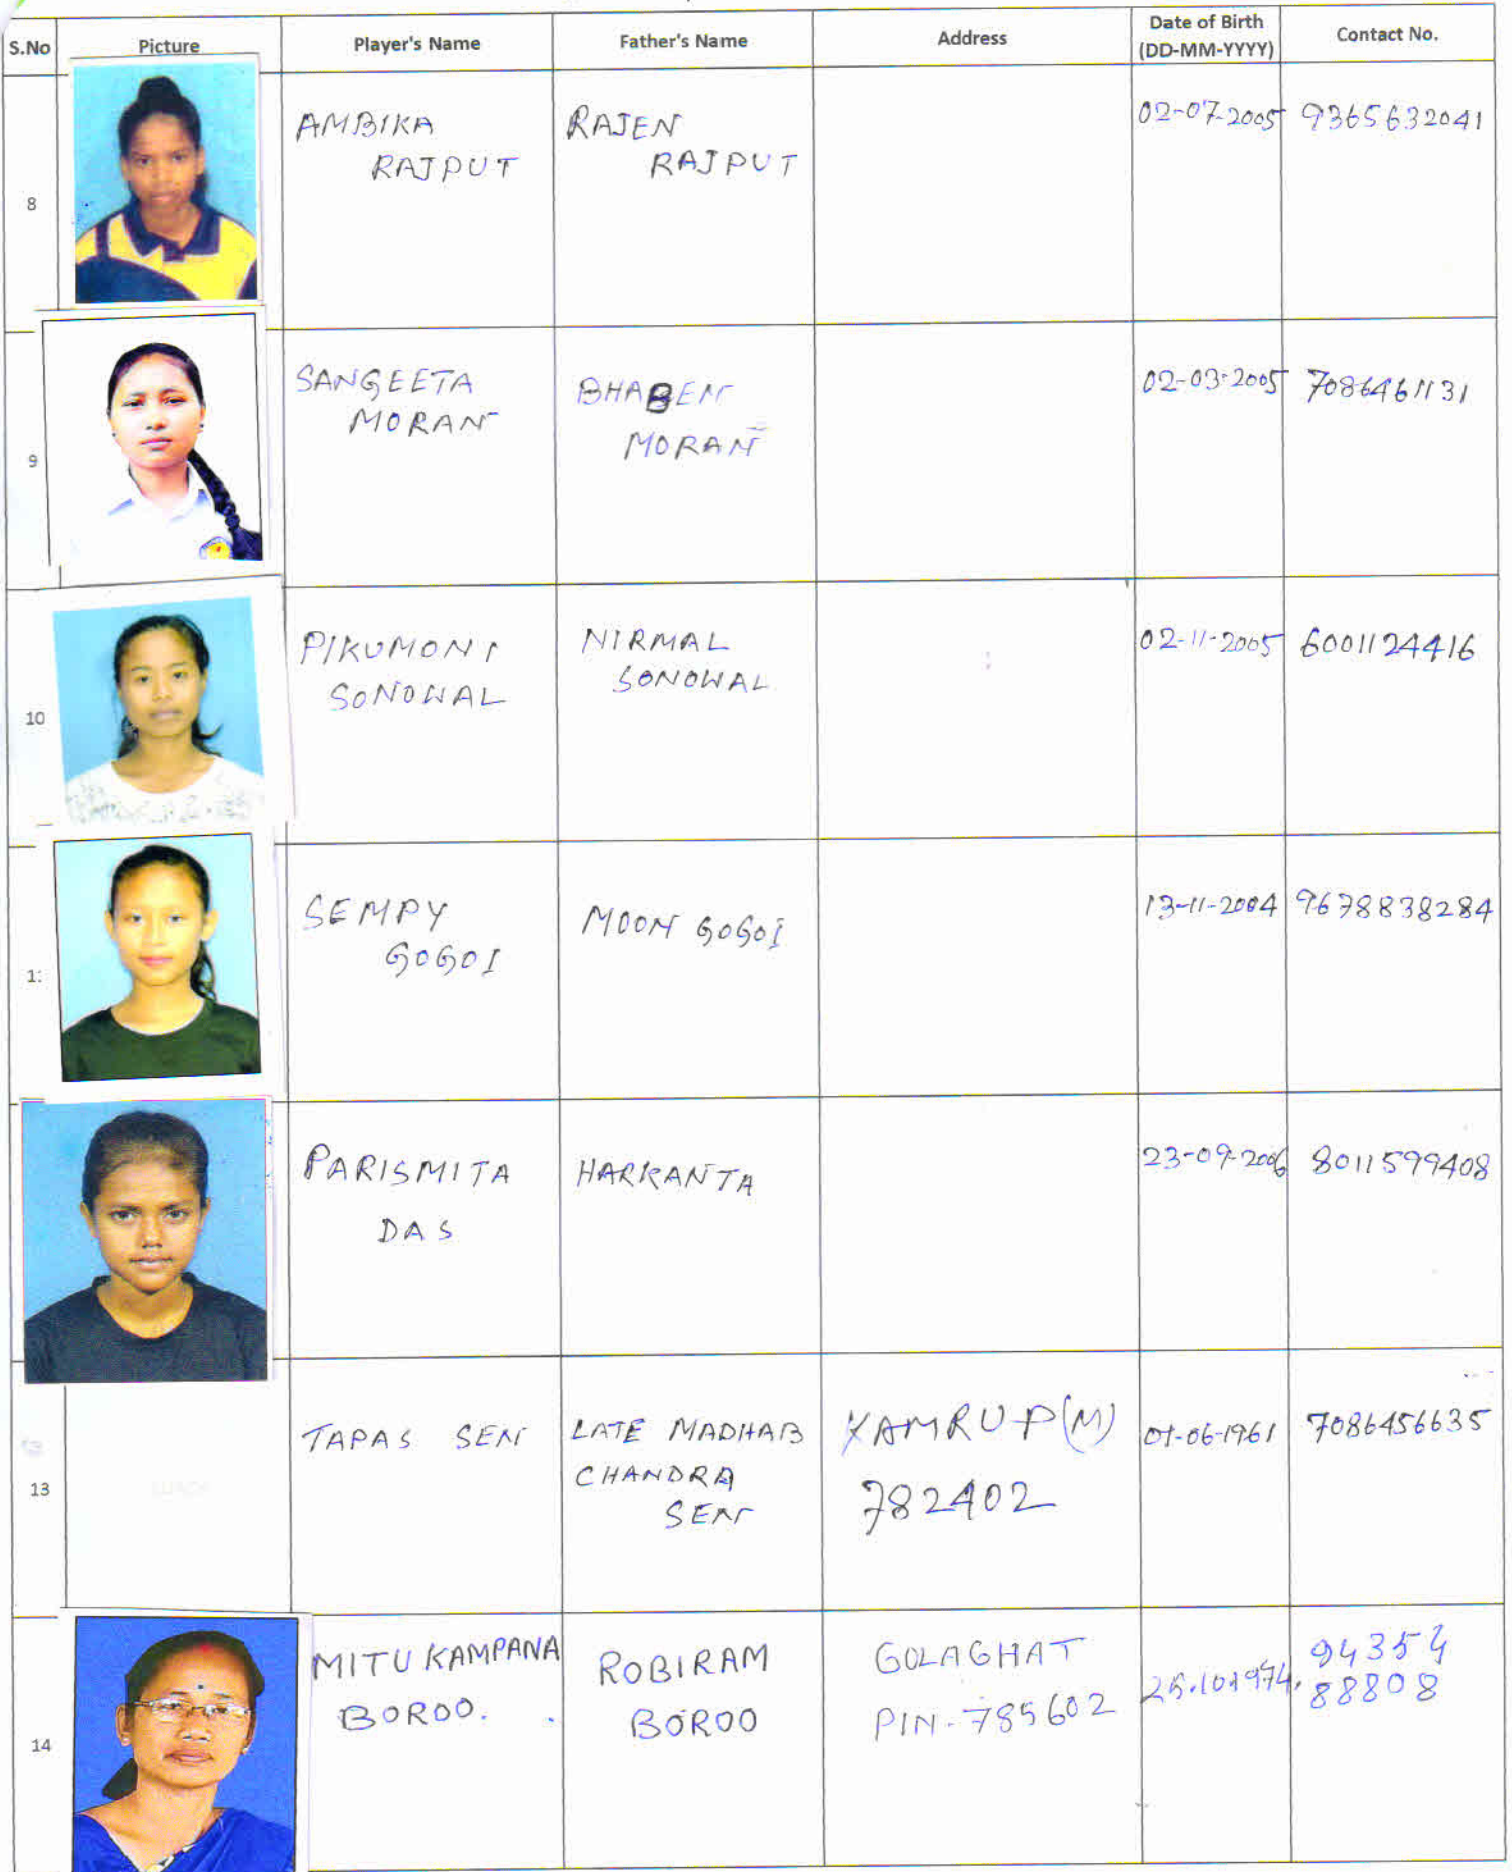 S.No Picture Player's Name Father's Name Address Date of Birth (DD-MM-YYYY) Contact No.
8 AMBIKA RAJPUT RAJEN RAJPUT 02-07-2005 9365632041
9 SANGEETA MORAN BHABEN MORAN 02-03-2005 7086461131
10 PIKUMONI SONOWAL NIRMAL SONOWAL 02-11-2005 6001124416
1: SEMPY GOGOI MOON GOGOI 13-11-2004 9678838284
PARISMITA DAS HARKANTA 23-09-2006 8011599408
13 TAPAS SEN LATE MADHAB CHANDRA SEN KAMRUP(M) 782402 01-06-1961 7086456635
14 MITU KAMPANA BOROO. ROBIRAM BOROO GOLAGHAT PIN-785602 94354 88808